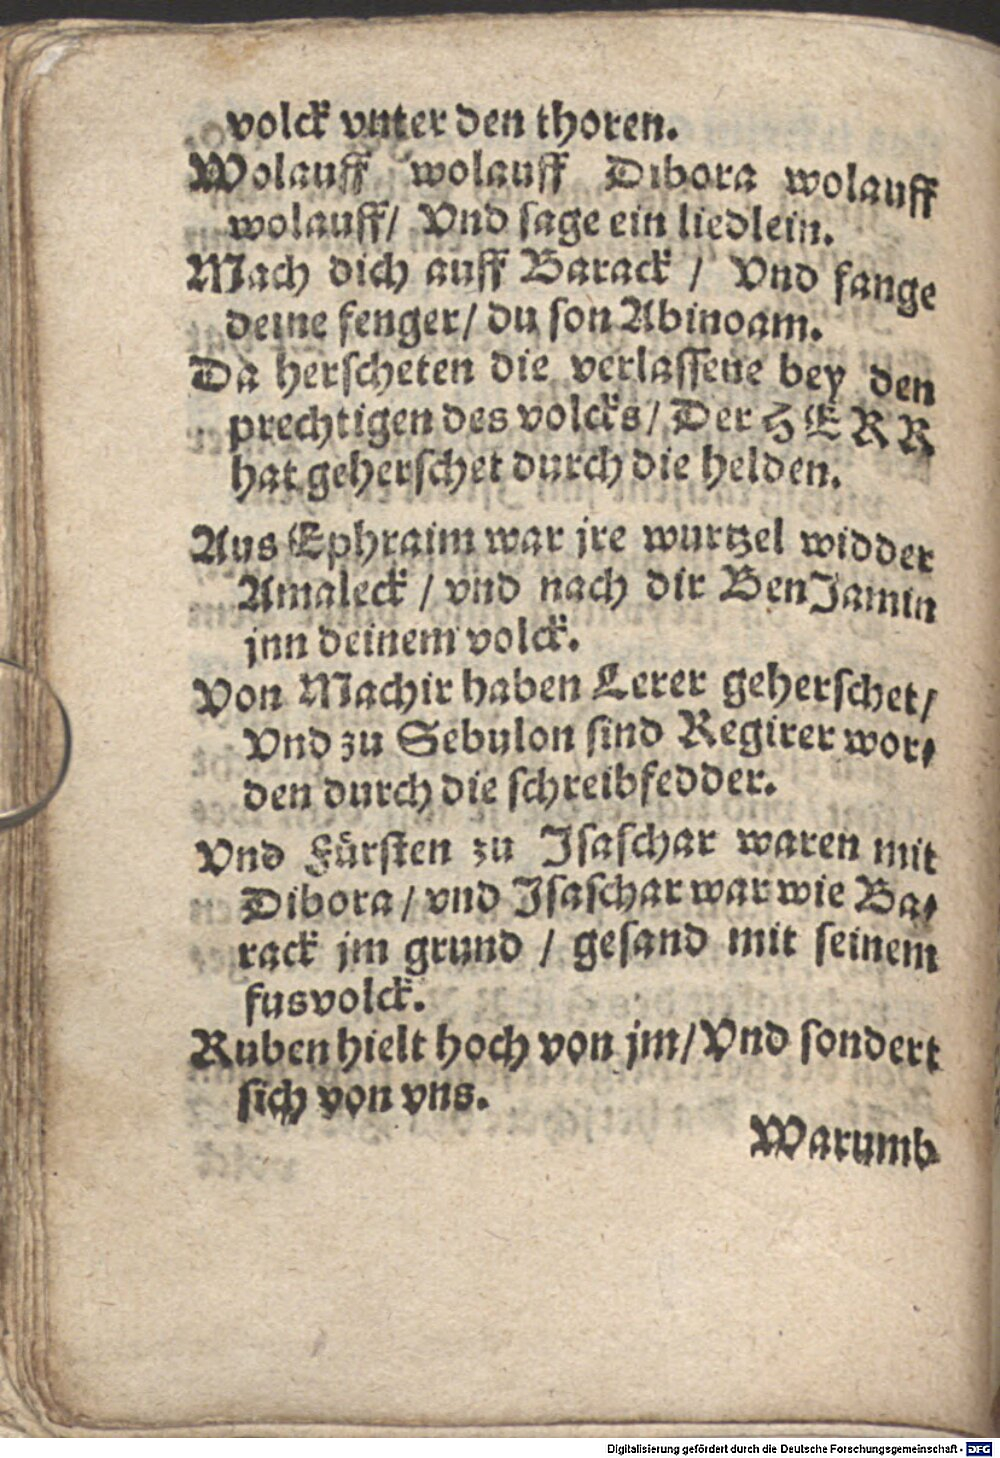 volck vnter den thoren.
Wolauff wolauff Dibora wolauff
wolauff/ Vnd sage ein liedlein.
Mach dich auff Barack / Vnd fange
deine fenger/ du son Abinoam.
Da herscheten die verlassene bey den
prechtigen des volcks/ Der HERR
hat geherschet durch die helden.
Aus Ephraim war jre wurtzel widder
Amaleck / vnd nach dir BenJamin
jnn deinem volck.
Von Machir haben Lerer geherschet/
Vnd zu Sebulon sind Regirer wor⸗
den durch die schreibfedder.
Vnd Fürsten zu Isaschar waren mit
Dibora/ vnd Isaschar war wie Ba⸗
rack jm grund / gesand mit seinem
fusvolck.
Ruben hielt hoch von jm/ Vnd sondert
sich von vns.
Warumb
Digitalisierung gefördert durch die Deutsche Forschungsgemeinschaft - DFG